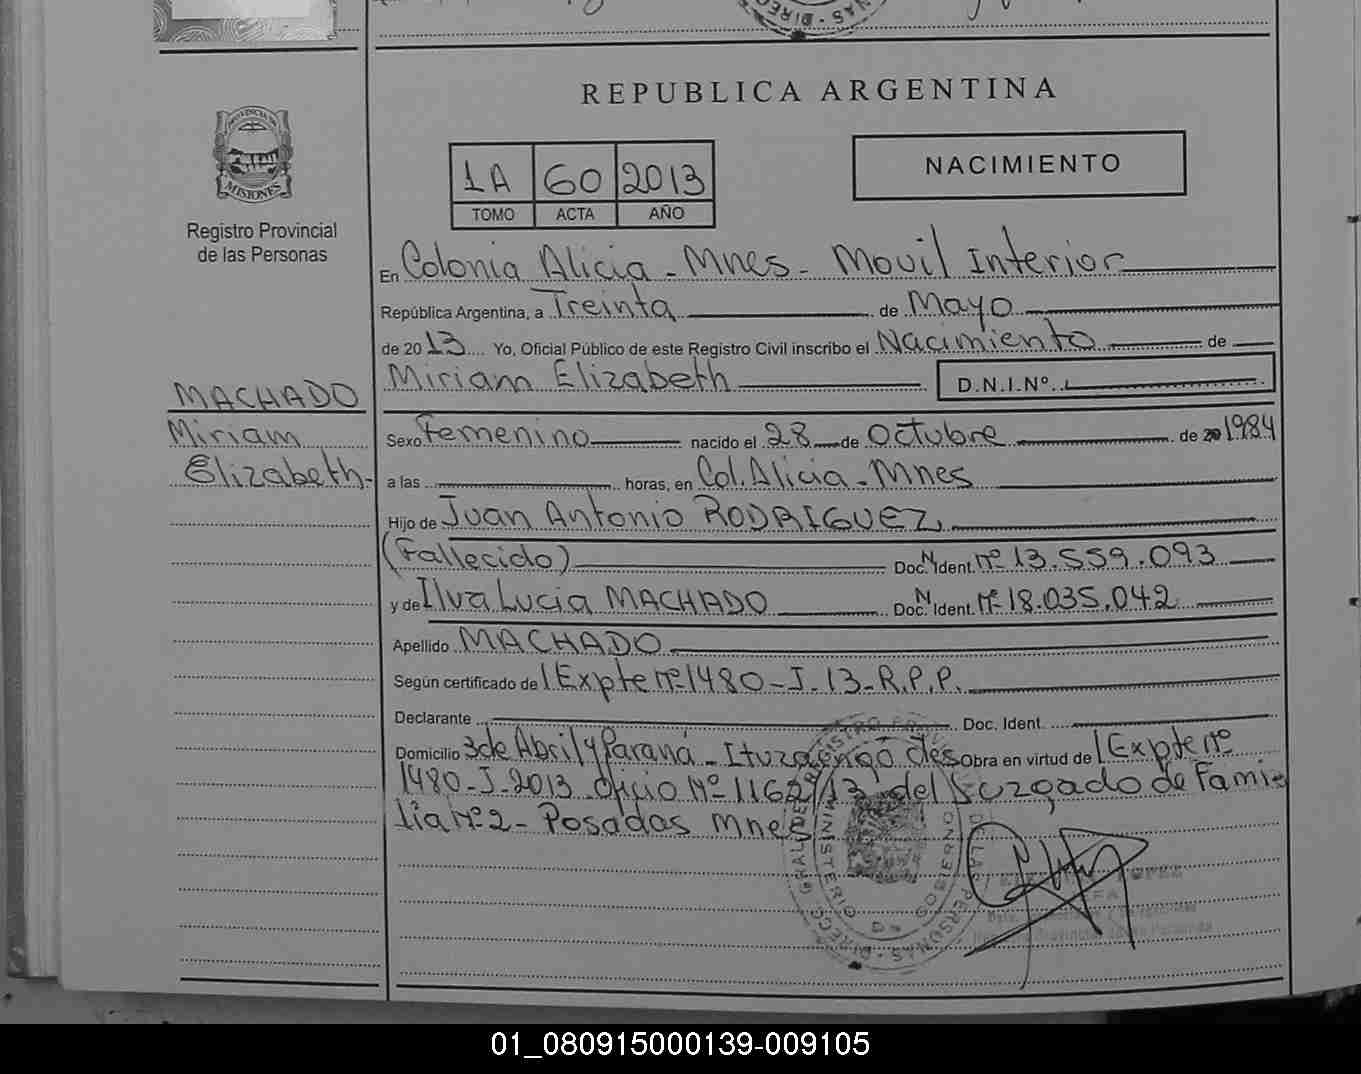 REPUBLICA ARGENTINA
PROVINCIA DE
MISIONES
Registro Provincial
de las Personas
1A 60 2013
TOMO ACTA AÑO
NACIMIENTO
En Colonia Alicia - Mnes - Movil Interior
República Argentina, a Treinta de Mayo
de 2013 Yo, Oficial Público de este Registro Civil inscribo el Nacimiento de
Miriam Elizabeth D.N.I.Nº.
MACHADO
Miriam
Elizabeth.-
Sexo Femenino nacido el 28 de Octubre de 20 1984
a las horas, en Col. Alicia - Mnes
Hijo de Juan Antonio RODRIGUEZ
(Fallecido) Doc. N. Ident. Nº 13.559.093
y de Ilva Lucia MACHADO Doc. N. Ident. Nº 18.035.042
Apellido MACHADO
Según certificado de Expte Nº 1480-J-13-R.P.P.
Declarante Doc. Ident.
Domicilio 3 de Abril y Paraná - Ituzaengo Obra en virtud de Expte Nº
1480-J-2013 oficio Nº 1162/13 del Juzgado de Fami-
lia Nº 2 - Posadas Mnes
MINISTERIO DE GOBIERNO
DIRECC. GRAL. DEL REGISTRO DE LAS PERSONAS
01_080915000139-009105